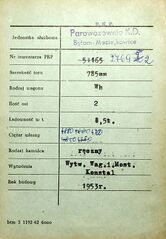 P. K. P.
Jednostka służbowa Parowozownia K.D.
Bytom-Maciejkowice
Nr inwentarza PKP 51165
Szerokość toru 785mm
Rodzaj wagonu Wh
Ilość osi 2
Ładowność w t 8,5t.
Ciężar własny
Rodzaj hamulca ręczny
Wytwórnia Wytw. Wag. i Most.
Konstal
Rok budowy 1953r.